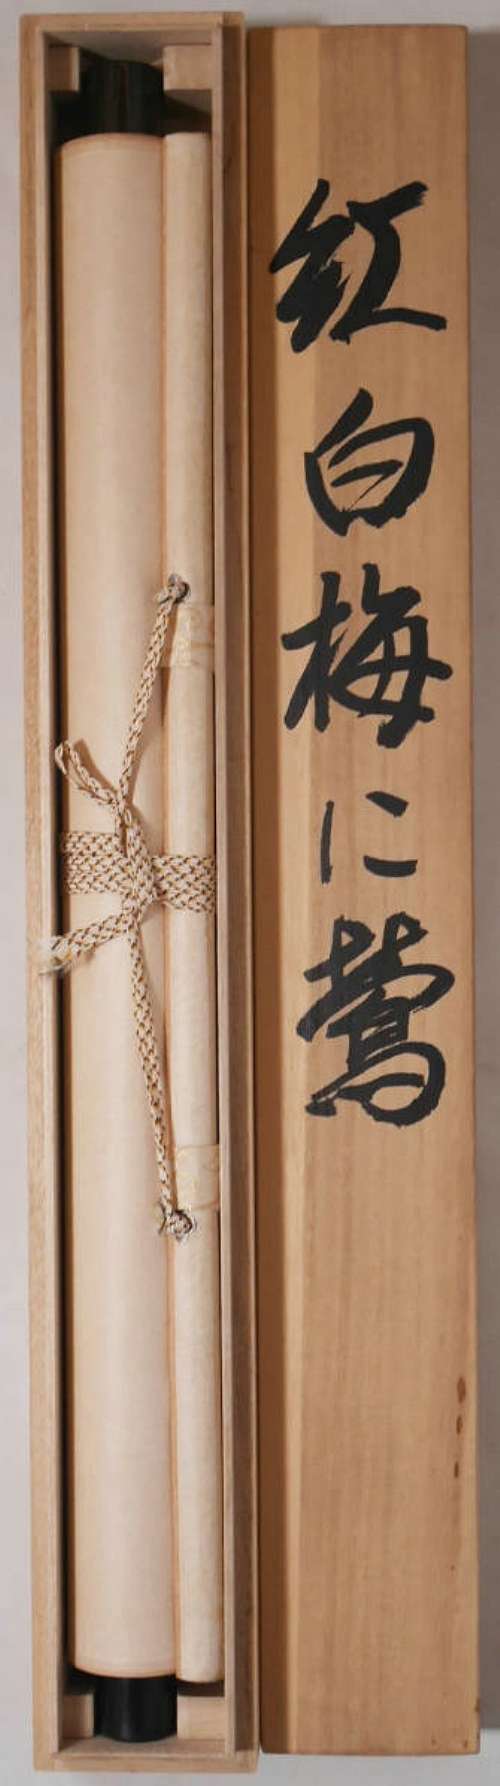 紅白梅に鶯